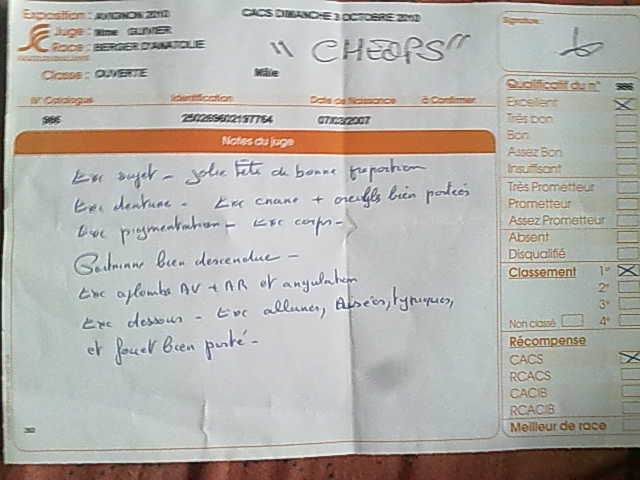 Exposition : AVIGNON 2010
CACS DIMANCHE 3 OCTOBRE 2010
Juge : Mme GUNIER
Race : BERGER D'ANATOLIE
Classe : OUVERTE
Mâle
"CHEOPS"
Signature :
N° Catalogue
Identification
Date de Naissance
à Confirmer
986
250269602197764
07/03/2007
Notes du juge
Exc sujet - Jolie tête de bonne proportion
Exc denture - Exc crane + oreilles bien portées
Exc pigmentation - Exc corps -
Poitrine bien descendue -
Exc aplombs AV + AR et angulation
Exc dessous - Exc allures, Aisées, typiques,
et fouet bien porté -
Qualificatif du n° 986
Excellent
Très bon
Bon
Assez Bon
Insuffisant
Très Prometteur
Prometteur
Assez Prometteur
Absent
Disqualifié
Classement 1er
2e
3e
Non classé 4e
Récompense
CACS
RCACS
CACIB
RCACIB
Meilleur de race